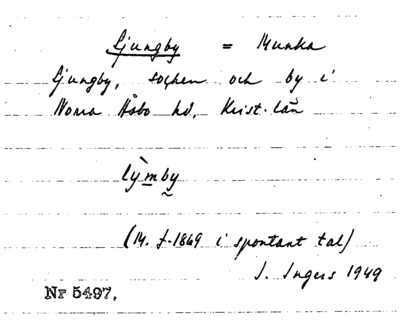 Ljungby = Munka
Ljungby, socken och by i
Norra Åsbo hd, Krist. län
lỳmby
(M. f. 1869 i spontant tal)
J. Ingers 1949
Nr 5497.